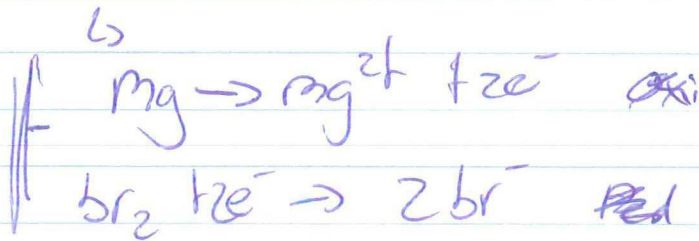 b)
mg → mg²⁺ + 2e⁻ oxi
br₂ + 2e⁻ → 2br⁻ red